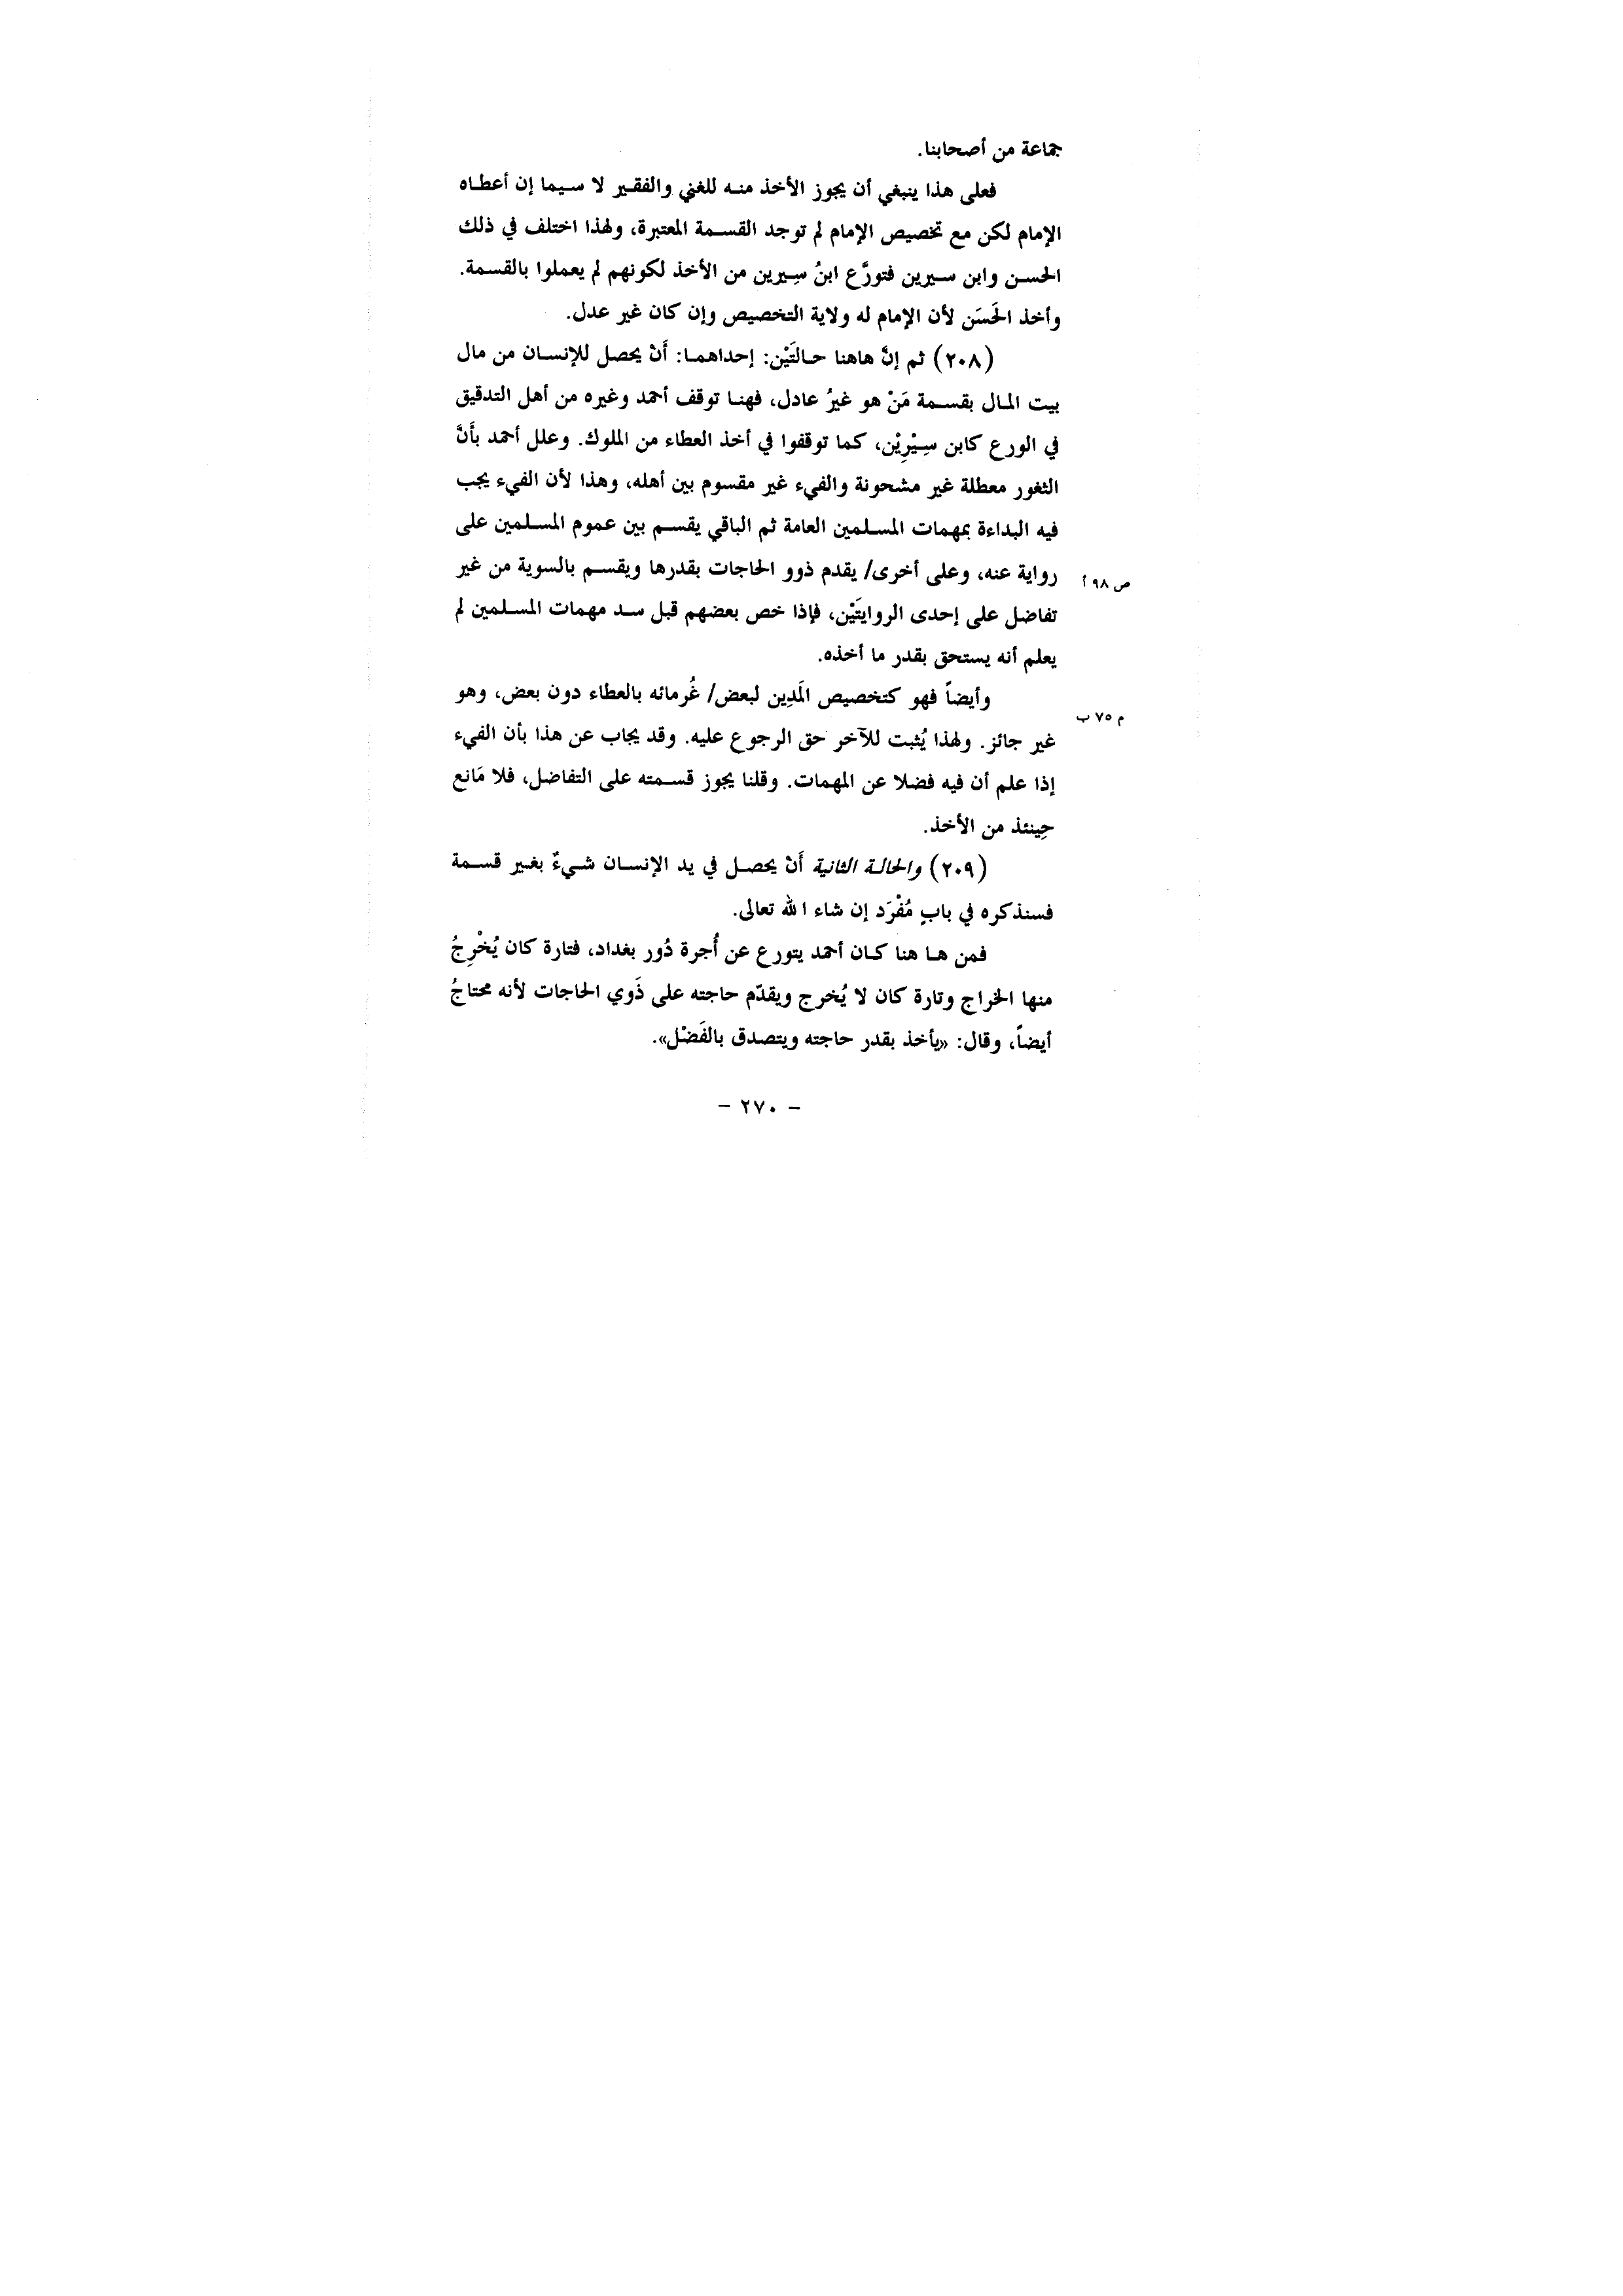 جماعة من أصحابنا.
فعلى هذا ينبغي أن يجوز الأخذ منه للغني والفقير لا سيما إن أعطاه
الإمام لكن مع تخصيص الإمام لم توجد القسمة المعتبرة، ولهذا اختلف في ذلك
الحسن وابن سيرين فتورَّع ابنُ سِيرين من الأخذ لكونهم لم يعملوا بالقسمة.
وأخذ الحَسَن لأن الإمام له ولاية التخصيص وإن كان غير عدل.
(٢٠٨) ثم إنَّ هاهنا حالَتَيْن: إحداهما: أَنْ يحصل للإنسان من مال
بيت المال بقسمة مَنْ هو غيرُ عادل، فهنا توقف أحمد وغيره من أهل التدقيق
في الورع كابن سِيْرِيْن، كما توقفوا في أخذ العطاء من الملوك. وعلل أحمد بأَنَّ
الثغور معطلة غير مشحونة والفيء غير مقسوم بين أهله، وهذا لأن الفيء يجب
فيه البداءة بمهمات المسلمين العامة ثم الباقي يقسم بين عموم المسلمين على
رواية عنه، وعلى أخرى/ يقدم ذوو الحاجات بقدرها ويقسم بالسوية من غير
ص ٩٨ أ
تفاضل على إحدى الروايتَيْن، فإذا خص بعضهم قبل سد مهمات المسلمين لم
يعلم أنه يستحق بقدر ما أخذه.
وأيضاً فهو كتخصيص المَدِين لبعض/ غُرمائه بالعطاء دون بعض، وهو
م ٧٥ ب
غير جائز. ولهذا يُثبت للآخر حق الرجوع عليه. وقد يجاب عن هذا بأن الفيء
إذا علم أن فيه فضلا عن المهمات. وقلنا يجوز قسمته على التفاضل، فلا مَانع
حِينئذ من الأخذ.
(٢٠٩) والحالة الثانية أَنْ يحصل في يد الإنسان شيءٌ بغير قسمة
فسنذكره في بابٍ مُفْرَد إن شاء الله تعالى.
فمن ها هنا كان أحمد يتورع عن أُجرة دُور بغداد، فتارة كان يُخْرِجُ
منها الخراج وتارة كان لا يُخرج ويقدّم حاجته على ذَوي الحاجات لأنه محتاجُ
أيضاً، وقال: «يأخذ بقدر حاجته ويتصدق بالفَضْل».
- ٢٧٠ -